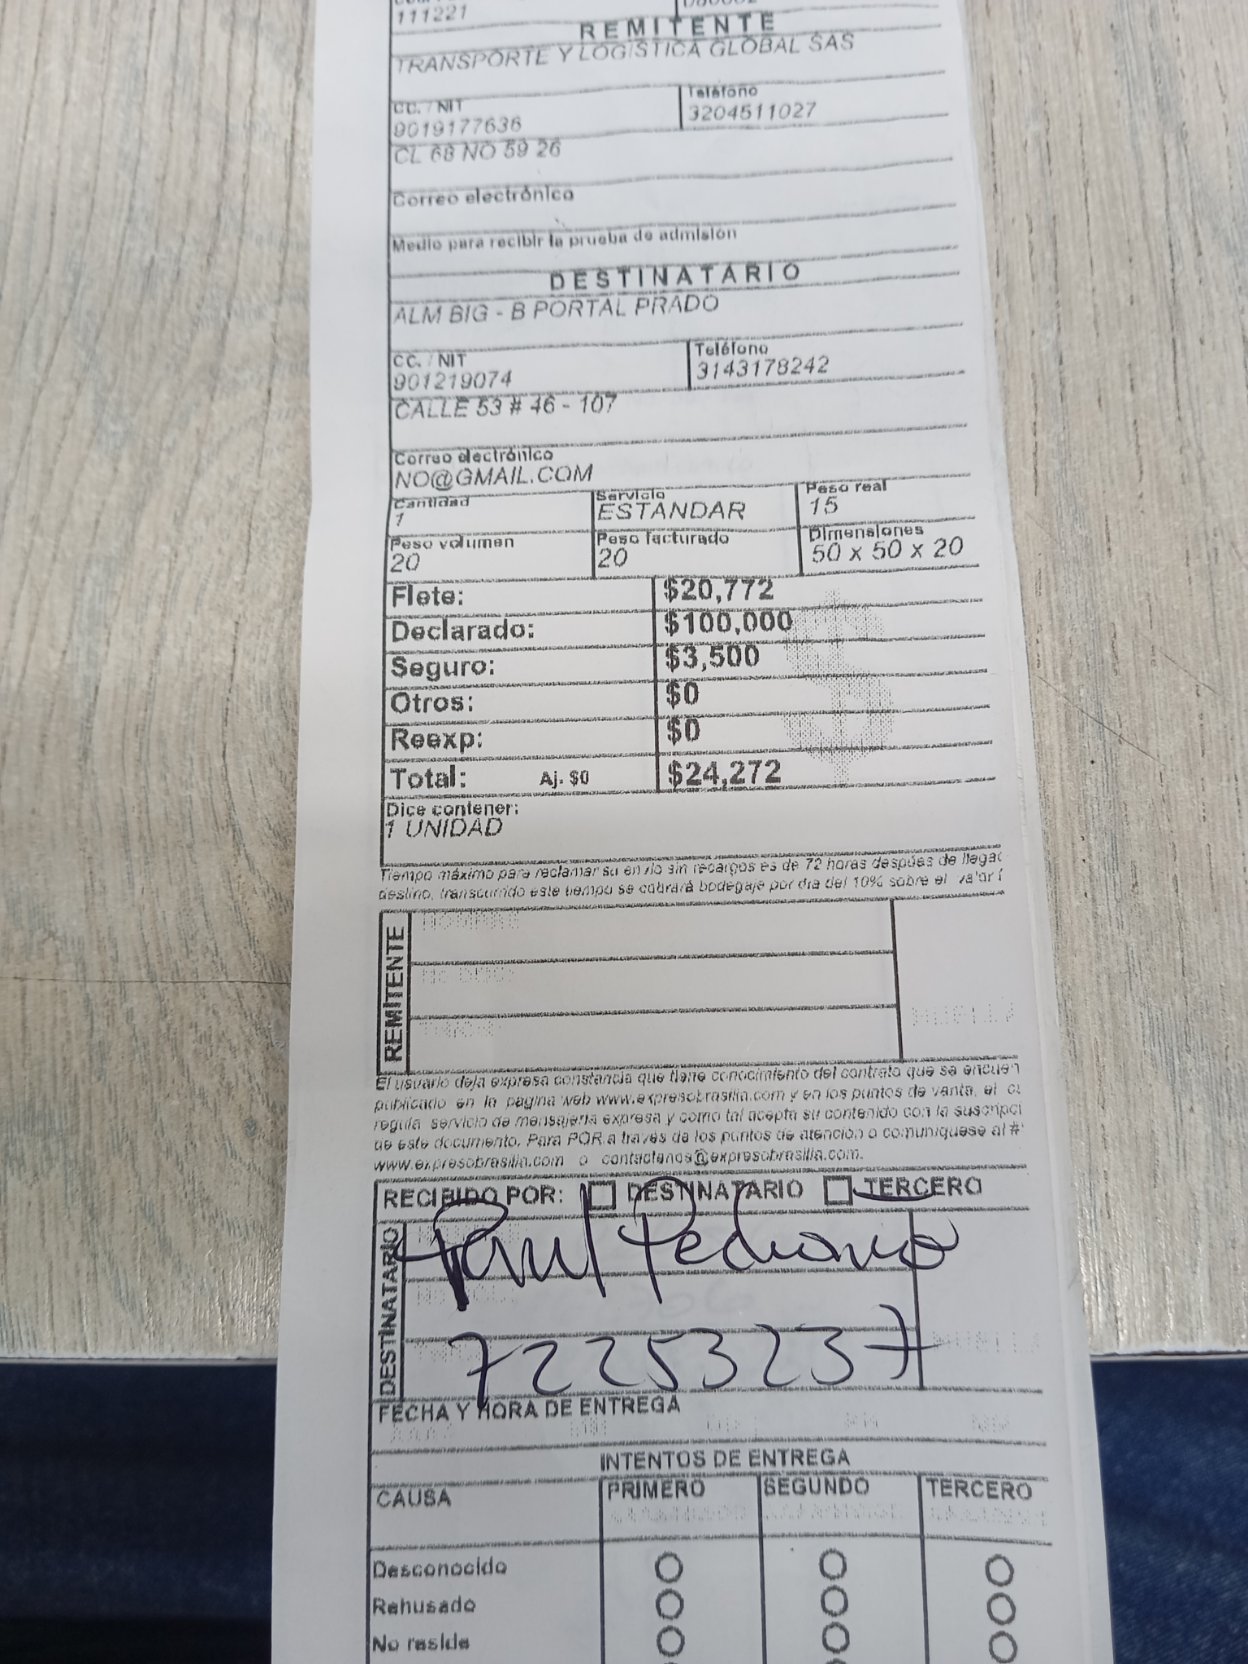 111221
REMITENTE
TRANSPORTE Y LOGISTICA GLOBAL SAS
CC. / NIT
9019177636
Teléfono
3204511027
CL 68 NO 59 26
Correo electrónico
Medio para recibir la prueba de admisión
DESTINATARIO
ALM BIG - B PORTAL PRADO
CC. / NIT
901219074
Teléfono
3143178242
CALLE 53 # 46 - 107
Correo electrónico
NO@GMAIL.COM
Cantidad
1
Servicio
ESTANDAR
Peso real
15
Peso volumen
20
Peso facturado
20
Dimensiones
50 x 50 x 20
Flete: $20,772
Declarado: $100,000
Seguro: $3,500
Otros: $0
Reexp: $0
Total: Aj. $0 $24,272
Dice contener:
1 UNIDAD
Tiempo máximo para reclamar su envío sin recargos es de 72 horas después de llegar
destino, transcurrido este tiempo se cobrará bodegaje por día del 10% sobre el valor
REMITENTE
El usuario deja expresa constancia que tiene conocimiento del contrato que se encuen
publicado en la página web www.expresobrasilia.com y en los puntos de venta, el
regula servicio de mensajería expresa y como tal acepta su contenido con la suscripci
de este documento. Para PQR a través de los puntos de atención o comuníquese al #
www.expresobrasilia.com o contactenos@expresobrasilia.com.
RECIBIDO POR: DESTINATARIO TERCERO
DESTINATARIO
Paul Pedrozo
72253237
FECHA Y HORA DE ENTREGA
INTENTOS DE ENTREGA
CAUSA PRIMERO SEGUNDO TERCERO
Desconocido
Rehusado
No reside